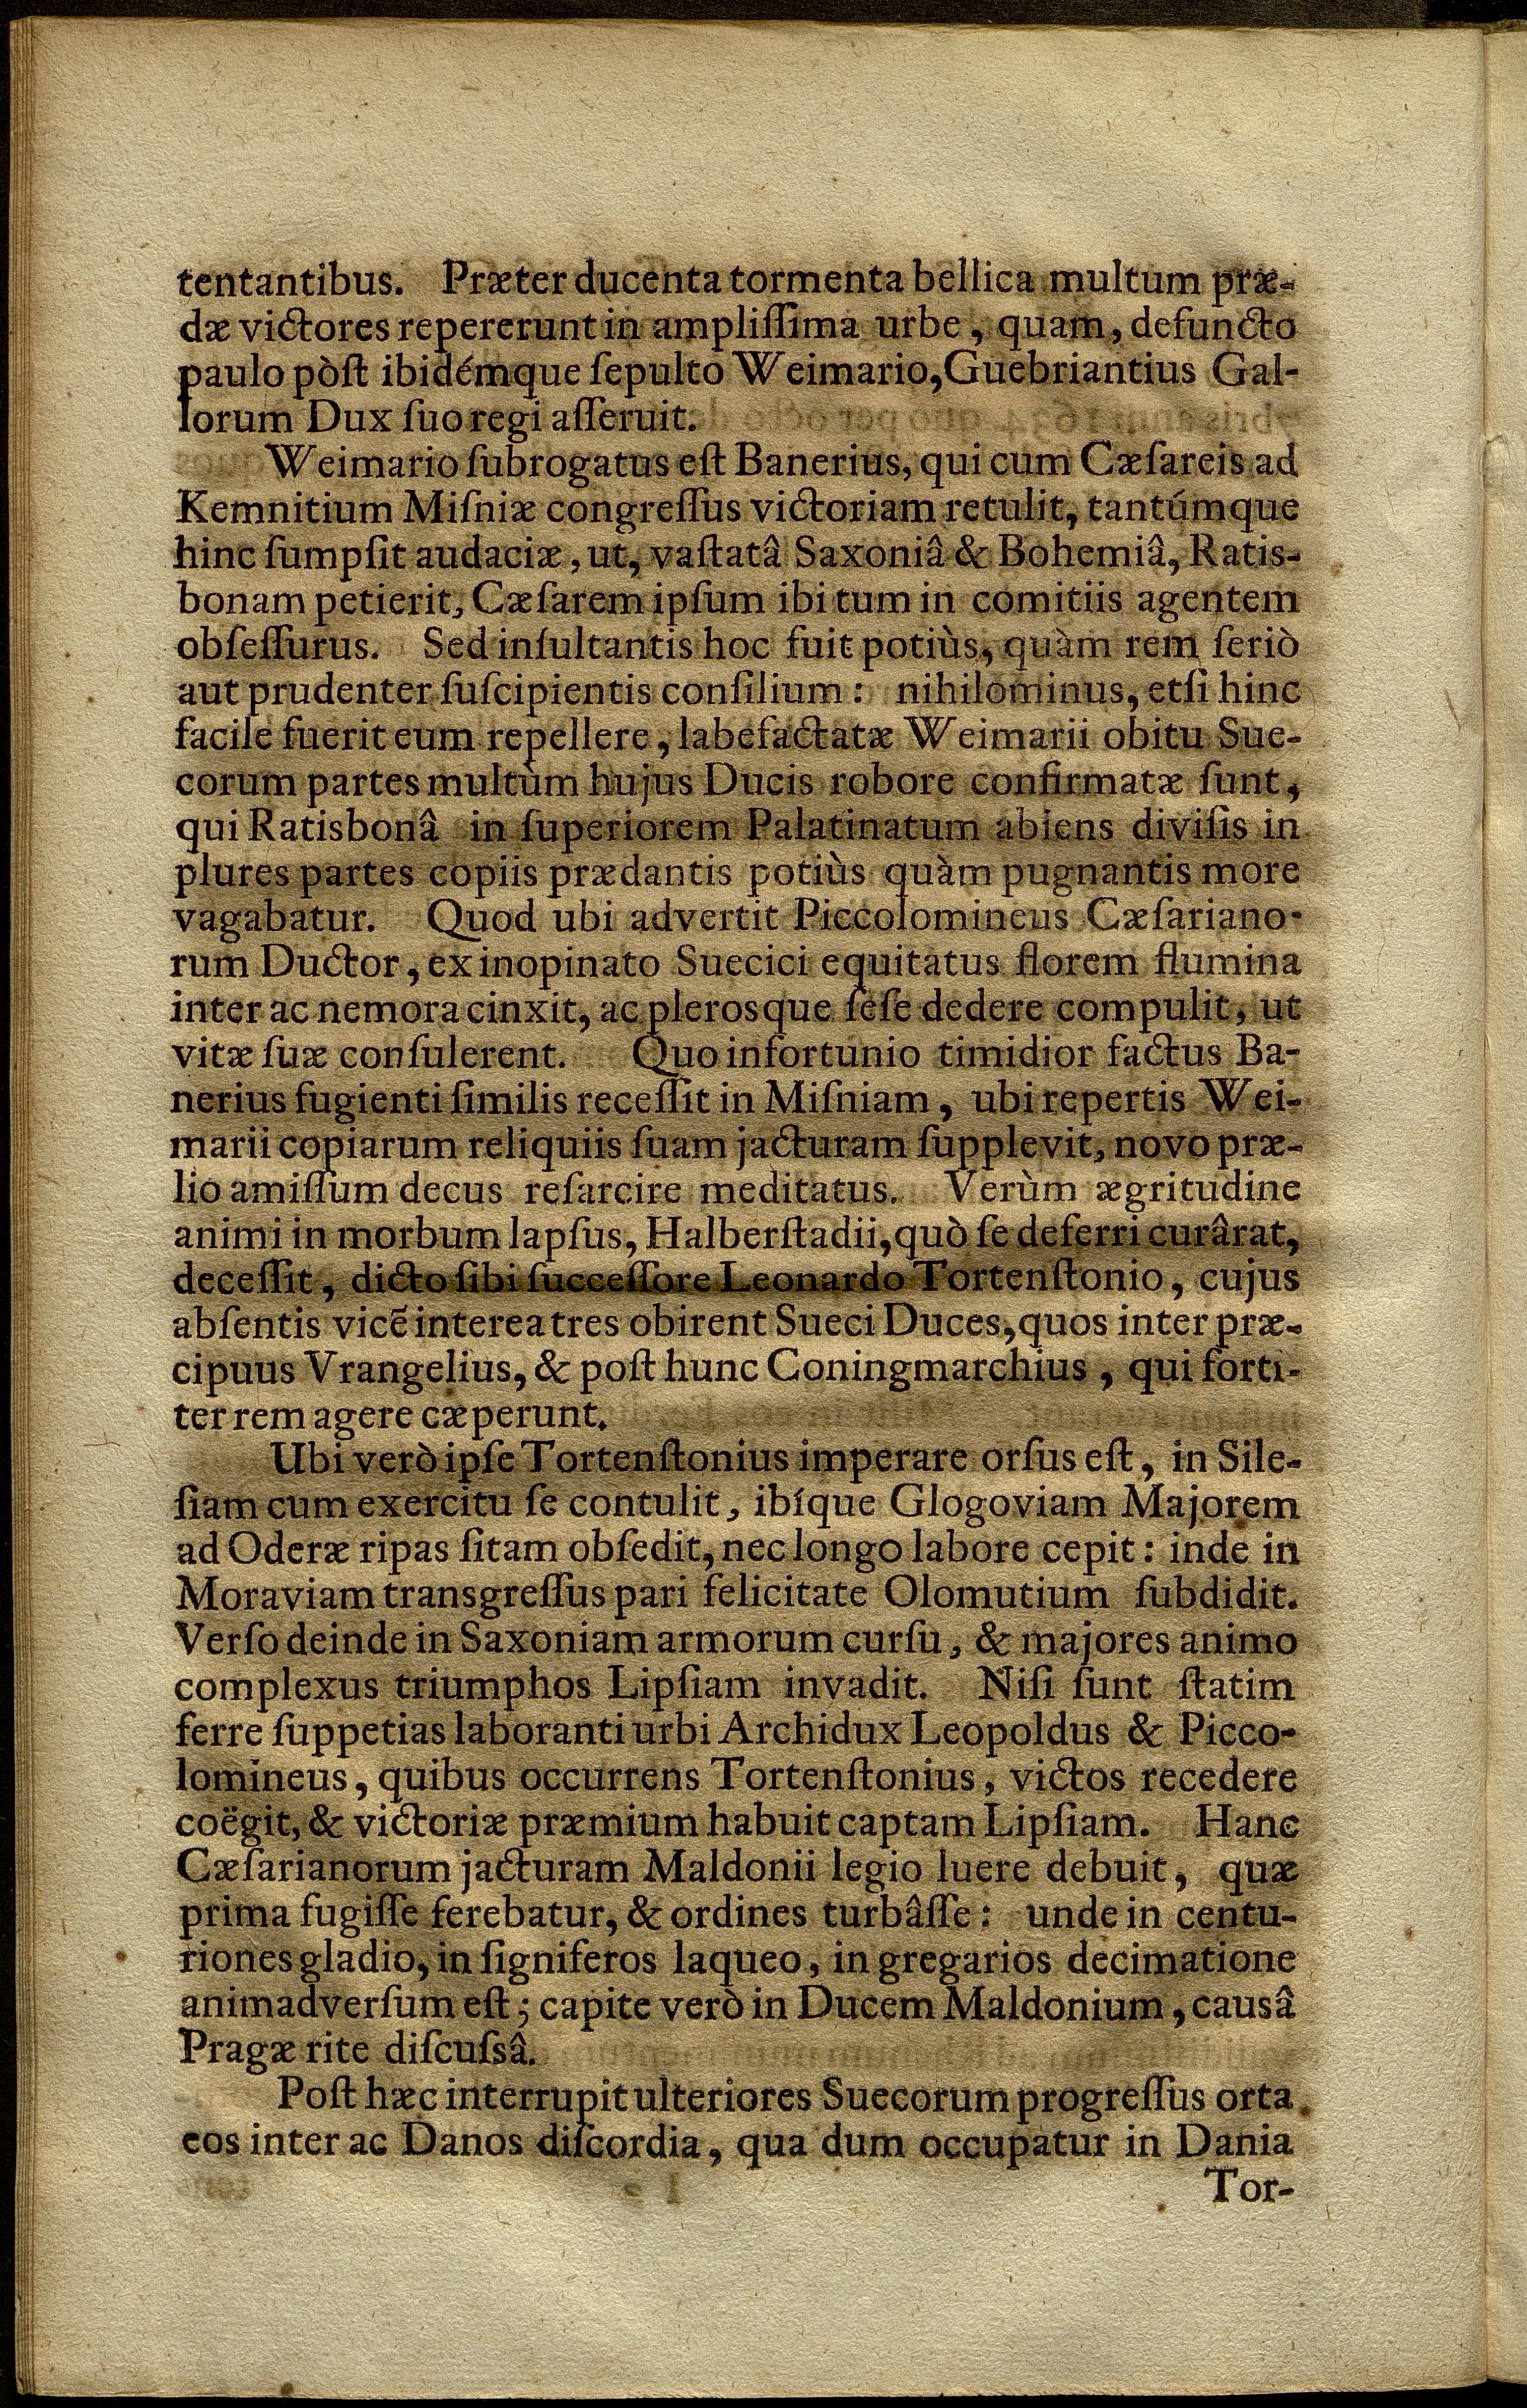 tentantibus. Præter ducenta tormenta bellica multum præ-
dæ victores repererunt in ampliſſima urbe, quam, defuncto
paulo pòſt ibidémque ſepulto Weimario, Guebriantius Gal-
lorum Dux ſuo regi aſſeruit.
Weimario ſubrogatus eſt Banerius, qui cum Cæſareis ad
Kemnitium Miſniæ congreſſus victoriam retulit, tantúmque
hinc ſumpſit audaciæ, ut, vaſtatâ Saxoniâ & Bohemiâ, Ratis-
bonam petierit, Cæſarem ipſum ibi tum in comitiis agentem
obſeſſurus. Sed inſultantis hoc fuit potiùs, quàm rem ſeriò
aut prudenter ſuſcipientis conſilium: nihilominus, etſi hinc
facile fuerit eum repellere, labefactatæ Weimarii obitu Sue-
corum partes multùm hujus Ducis robore confirmatæ ſunt,
qui Ratisbonâ in ſuperiorem Palatinatum abiens diviſis in
plures partes copiis prædantis potiùs quàm pugnantis more
vagabatur. Quod ubi advertit Piccolomineus Cæſariano-
rum Ductor, ex inopinato Suecici equitatus florem flumina
inter ac nemora cinxit, ac plerosque ſeſe dedere compulit, ut
vitæ ſuæ conſulerent. Quo infortunio timidior factus Ba-
nerius fugienti ſimilis receſſit in Miſniam, ubi repertis Wei-
marii copiarum reliquiis ſuam jacturam ſupplevit, novo præ-
lio amiſſum decus reſarcire meditatus. Verùm ægritudine
animi in morbum lapſus, Halberſtadii, quò ſe deferri curârat,
deceſſit, dicto ſibi ſucceſſore Leonardo Tortenſtonio, cujus
abſentis vicē interea tres obirent Sueci Duces, quos inter præ-
cipuus Vrangelius, & poſt hunc Coningmarchius, qui forti-
ter rem agere cæperunt.
Ubi verò ipſe Tortenſtonius imperare orſus eſt, in Sile-
ſiam cum exercitu ſe contulit, ibíque Glogoviam Majorem
ad Oderæ ripas ſitam obſedit, nec longo labore cepit: inde in
Moraviam transgreſſus pari felicitate Olomutium ſubdidit.
Verſo deinde in Saxoniam armorum curſu, & majores animo
complexus triumphos Lipſiam invadit. Niſi ſunt ſtatim
ferre ſuppetias laboranti urbi Archidux Leopoldus & Picco-
lomineus, quibus occurrens Tortenſtonius, victos recedere
coëgit, & victoriæ præmium habuit captam Lipſiam. Hanc
Cæſarianorum jacturam Maldonii legio luere debuit, quæ
prima fugiſſe ferebatur, & ordines turbâſſe: unde in centu-
riones gladio, in ſigniferos laqueo, in gregarios decimatione
animadverſum eſt; capite verò in Ducem Maldonium, causâ
Pragæ rite diſcuſsâ.
Poſt hæc interrupit ulteriores Suecorum progreſſus orta
eos inter ac Danos diſcordia, qua dum occupatur in Dania
Tor-